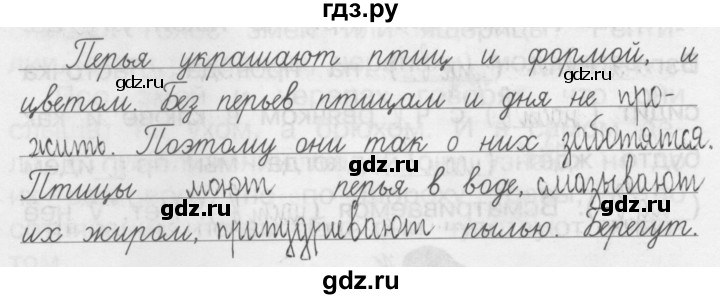 гдз.ру
Перья украшают птиц и формой, и
gdz.ru gdz.ru
цветом. Без перьев птицам и дня не про-
жить. Поэтому они так о них заботятся.
gdz.ru
Птицы моют перья в воде, смазывают
gdz.ru gdz.ru
их жиром, припудривают пылью. Берегут.
gdz.ru